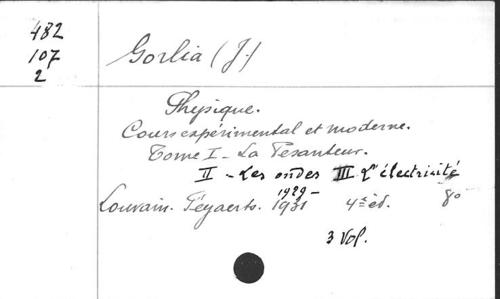 482
107
2
Gorlia (J.)
Physique.
Cours expérimental et moderne.
Tome I - La Pesanteur.
II - Les ondes III L'électricité
1929 -
Louvain. Féyaerts. 1931 4e éd. 8o
3 Vol.